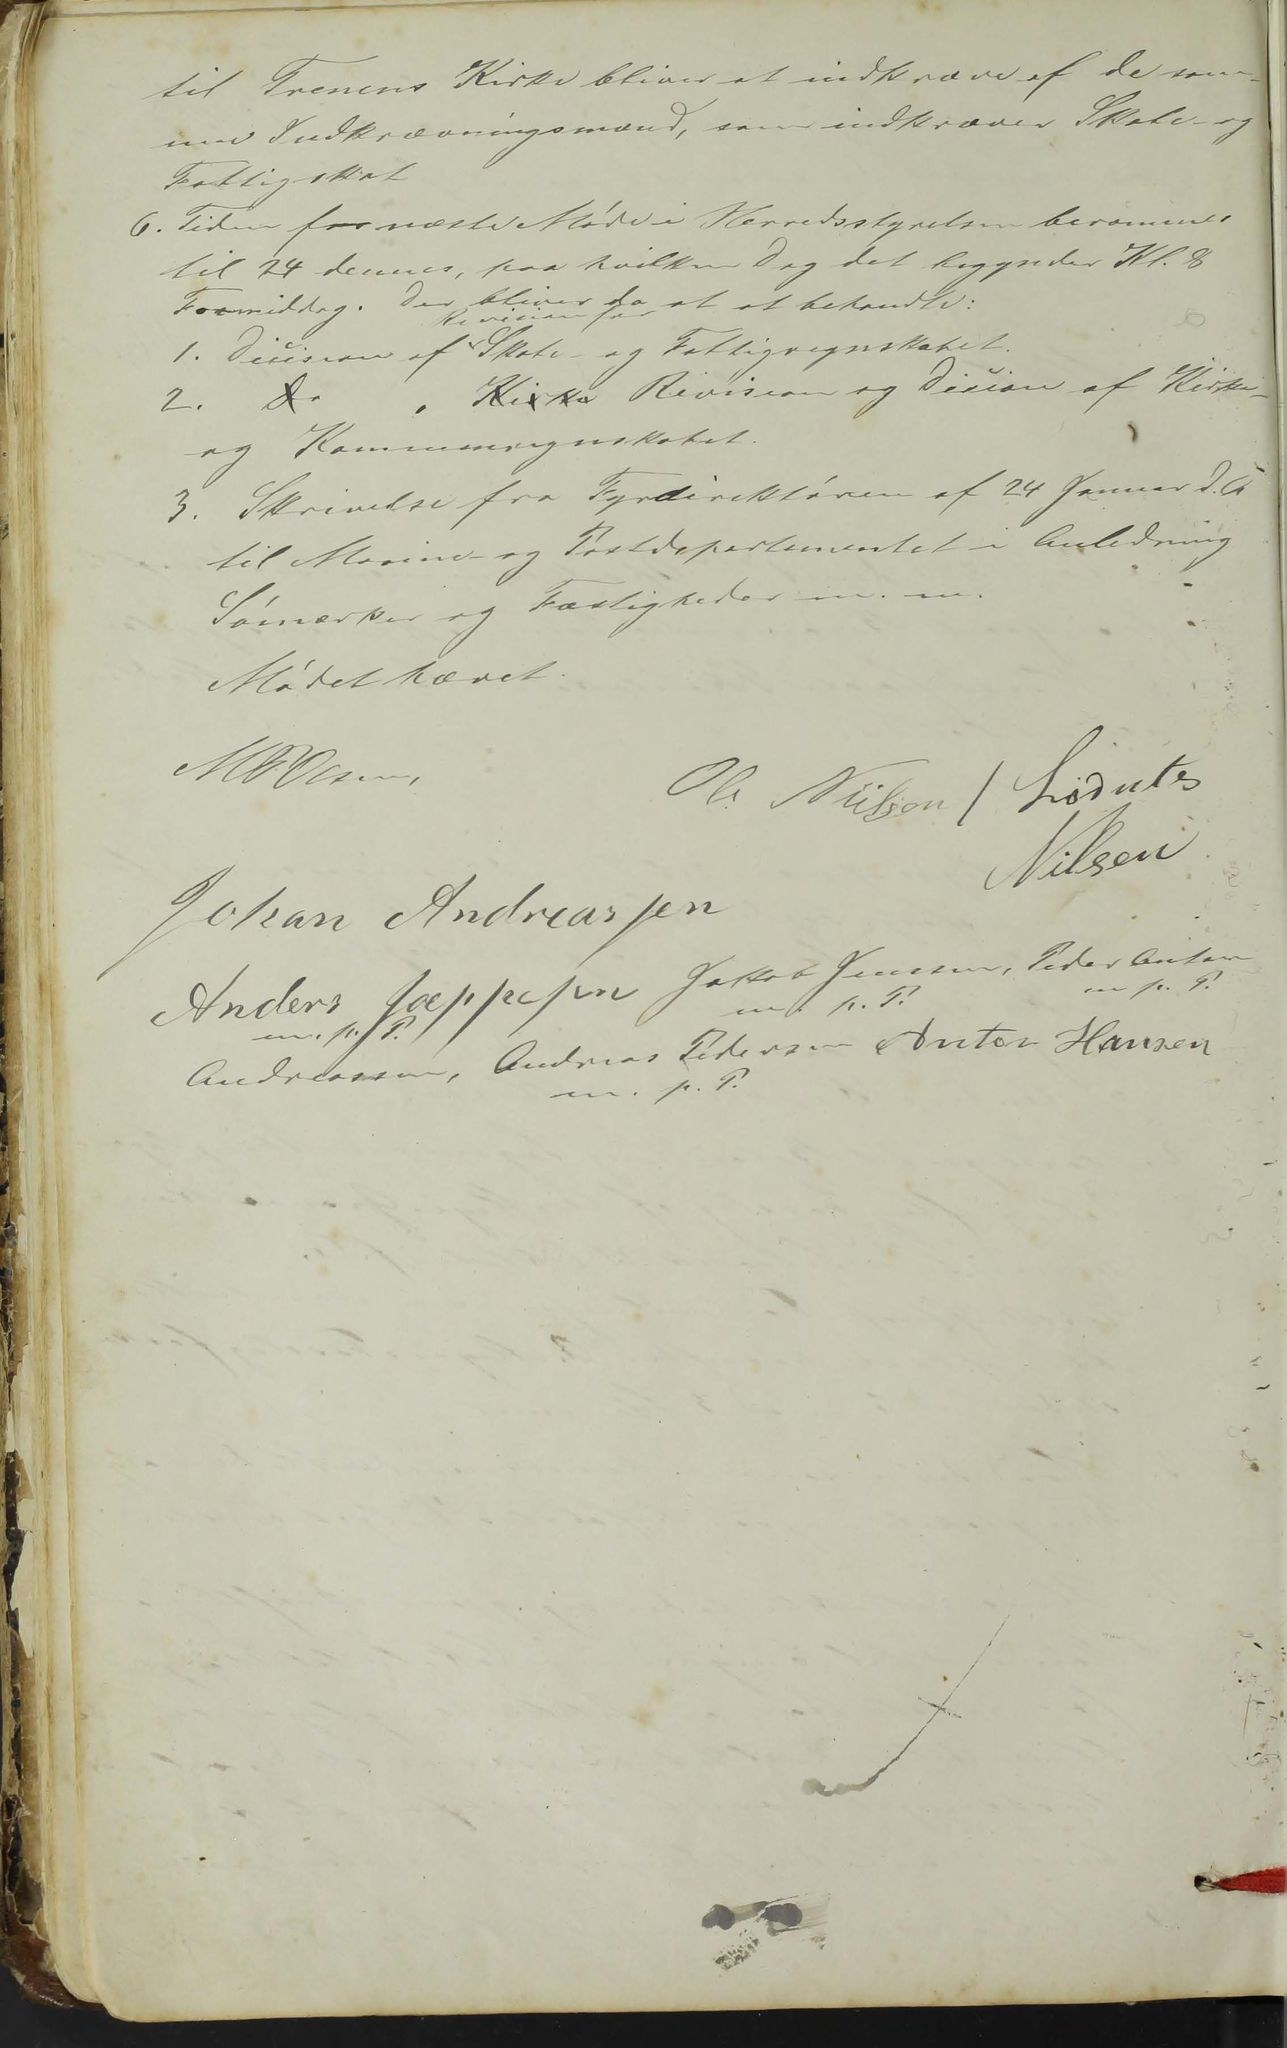 til Trenens Kirke bliver at indkræve af de sam-
me Indkrævningsmænd, som indkræver Skole- og
Fattigskat
6. Tiden for næste Møde i Herredsstyrelsen berammes
til 24 dennes, paa hvilken Dag det begynder Kl. 8
Formiddag. Der bliver da at at behandle:
Revision for
1. Dicision af Skole- og Fattigregnskabet.
2. Do " Kirke Revision og Dicion af Kirke-
og Kommuneregnskabet.
3. Skrivelse fra Fyrdirektøren af 24 Januar d. A
til Marine- og Postdepartementet i Anledning
Sømærker og Fæstigheder m. m.
Mødet hævet.
Olsen,
Ol. Nilsen /
Nilsen
Johan Andreassen
Anders Jæppesen Jakob Jenssen, Peder Anton
m. p. P. m. p. P. m. p. P.
Andreassen, Andreas Pedersen Anton Hansen
m. p. P.